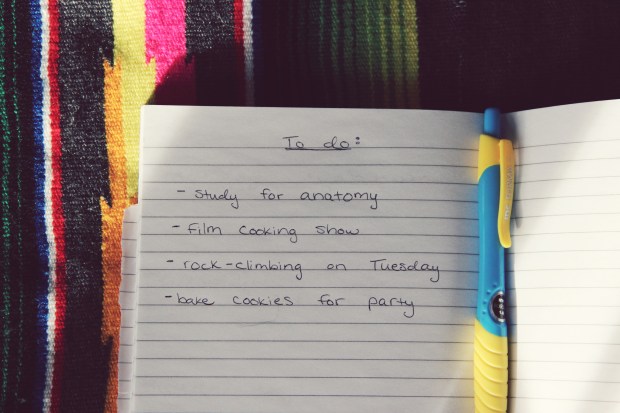 To do:
- study for anatomy
- film cooking show
- rock-climbing on Tuesday
- bake cookies for party